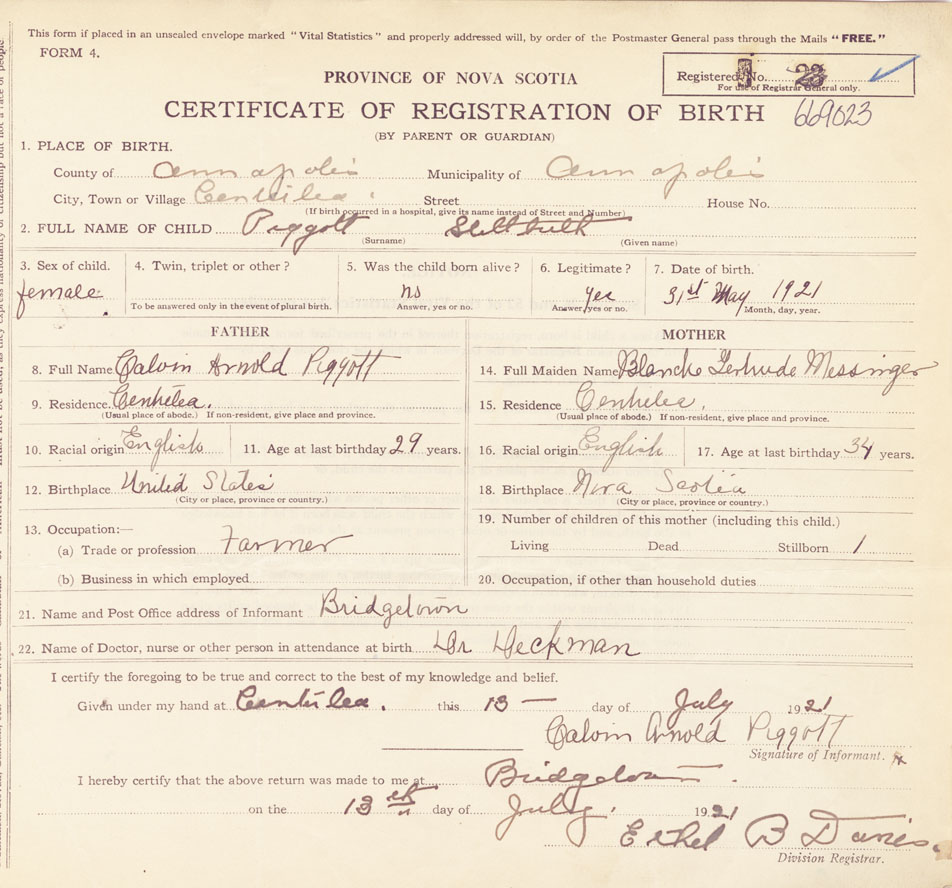 This form if placed in an unsealed envelope marked "Vital Statistics" and properly addressed will, by order of the Postmaster General pass through the Mails "FREE."
FORM 4.
PROVINCE OF NOVA SCOTIA
Registered No. 23
For use of Registrar General only.
CERTIFICATE OF REGISTRATION OF BIRTH 669023
(BY PARENT OR GUARDIAN)
1. PLACE OF BIRTH.
County of Annapolis Municipality of Annapolis
City, Town or Village Centrelea. Street House No.
(If birth occurred in a hospital, give its name instead of Street and Number)
2. FULL NAME OF CHILD Piggott Stillbirth
(Surname) (Given name)
3. Sex of child. 4. Twin, triplet or other? 5. Was the child born alive? 6. Legitimate? 7. Date of birth.
female no yes 31st May 1921
To be answered only in the event of plural birth. Answer, yes or no. Answer, yes or no. Month, day, year.
FATHER MOTHER
8. Full Name Calvin Arnold Piggott 14. Full Maiden Name Blanche Gertrude Messinger
9. Residence Centrelea. 15. Residence Centrelea.
(Usual place of abode.) If non-resident, give place and province. (Usual place of abode.) If non-resident, give place and province.
10. Racial origin English 11. Age at last birthday 29 years. 16. Racial origin English 17. Age at last birthday 34 years.
12. Birthplace United States 18. Birthplace Nova Scotia
(City or place, province or country.) (City or place, province or country.)
13. Occupation:— 19. Number of children of this mother (including this child.)
(a) Trade or profession Farmer Living Dead Stillborn 1
(b) Business in which employed 20. Occupation, if other than household duties
21. Name and Post Office address of Informant Bridgetown
22. Name of Doctor, nurse or other person in attendance at birth Dr Deckman
I certify the foregoing to be true and correct to the best of my knowledge and belief.
Given under my hand at Centrelea. this 13 — day of July 1921
Calvin Arnold Piggott
Signature of Informant.
I hereby certify that the above return was made to me at Bridgetown.
on the 13th day of July. 1921
Ethel B Davies.
Division Registrar.